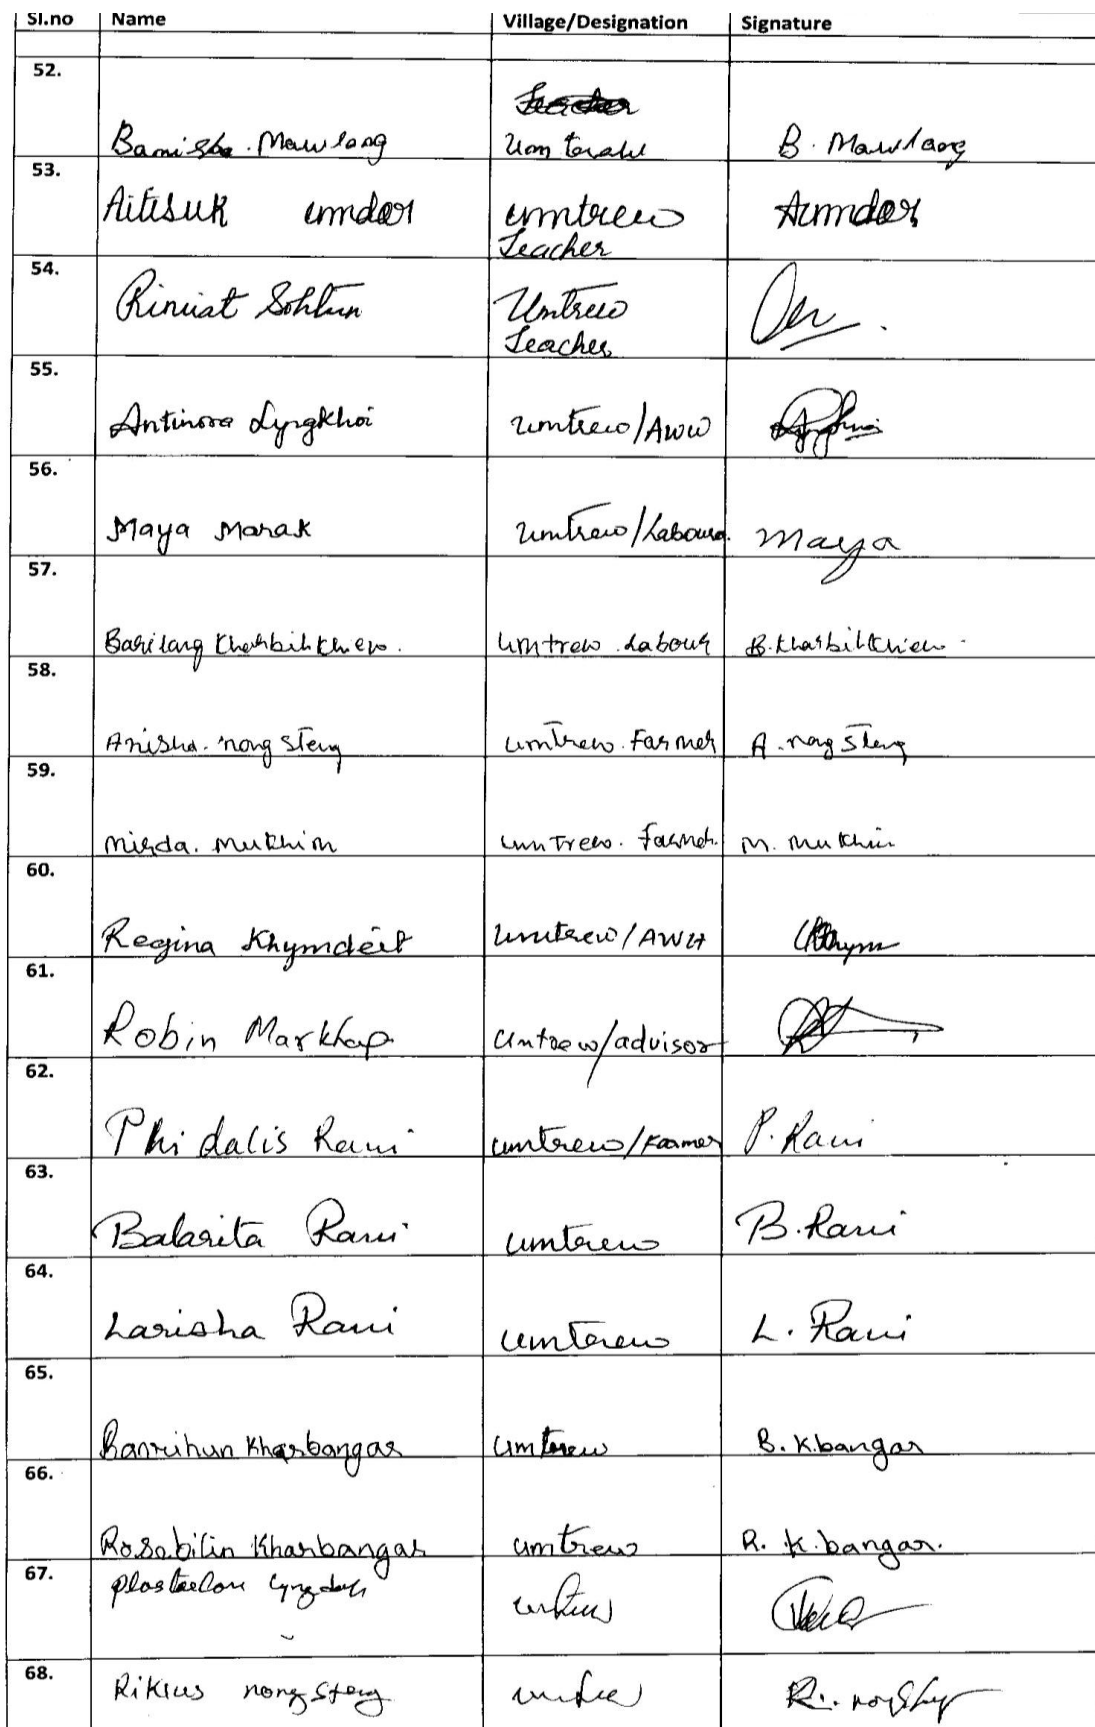 Sl.no Name Village/Designation Signature
52.
Bamisha. Mawlong Umtrew B. Mawlong
53.
Aitisuk umdor umtrew Aumdor
Teacher
54.
Riniat Sohtun Umtrew
Teacher
55.
Antinora Lyngkhoi umtrew/AWW
56.
Maya Marak Umtrew/Labour. Maya
57.
Barilang Kharbihkhiew. umtrew Labour B. Kharbihkhiew
58.
Anisha. nongsteng umtrew. Farmer A. nongsteng
59.
mirda. mukhim umtrew. Farmer. M. mukhim
60.
Regina Khymdeit Umtrew/AWH
61.
Robin Markhap umtrew/advisor
62.
Phidalis Rani umtrew/Farmer P. Rani
63.
Balarita Rani umtrew B. Rani
64.
Larisha Rani umtrew L. Rani
65.
Banrihun Kharbangar umtrew B. K.bangar
66.
Rosabilin Kharbangar umtrew R. K.bangar.
67.
68.
Rikius nongsteng